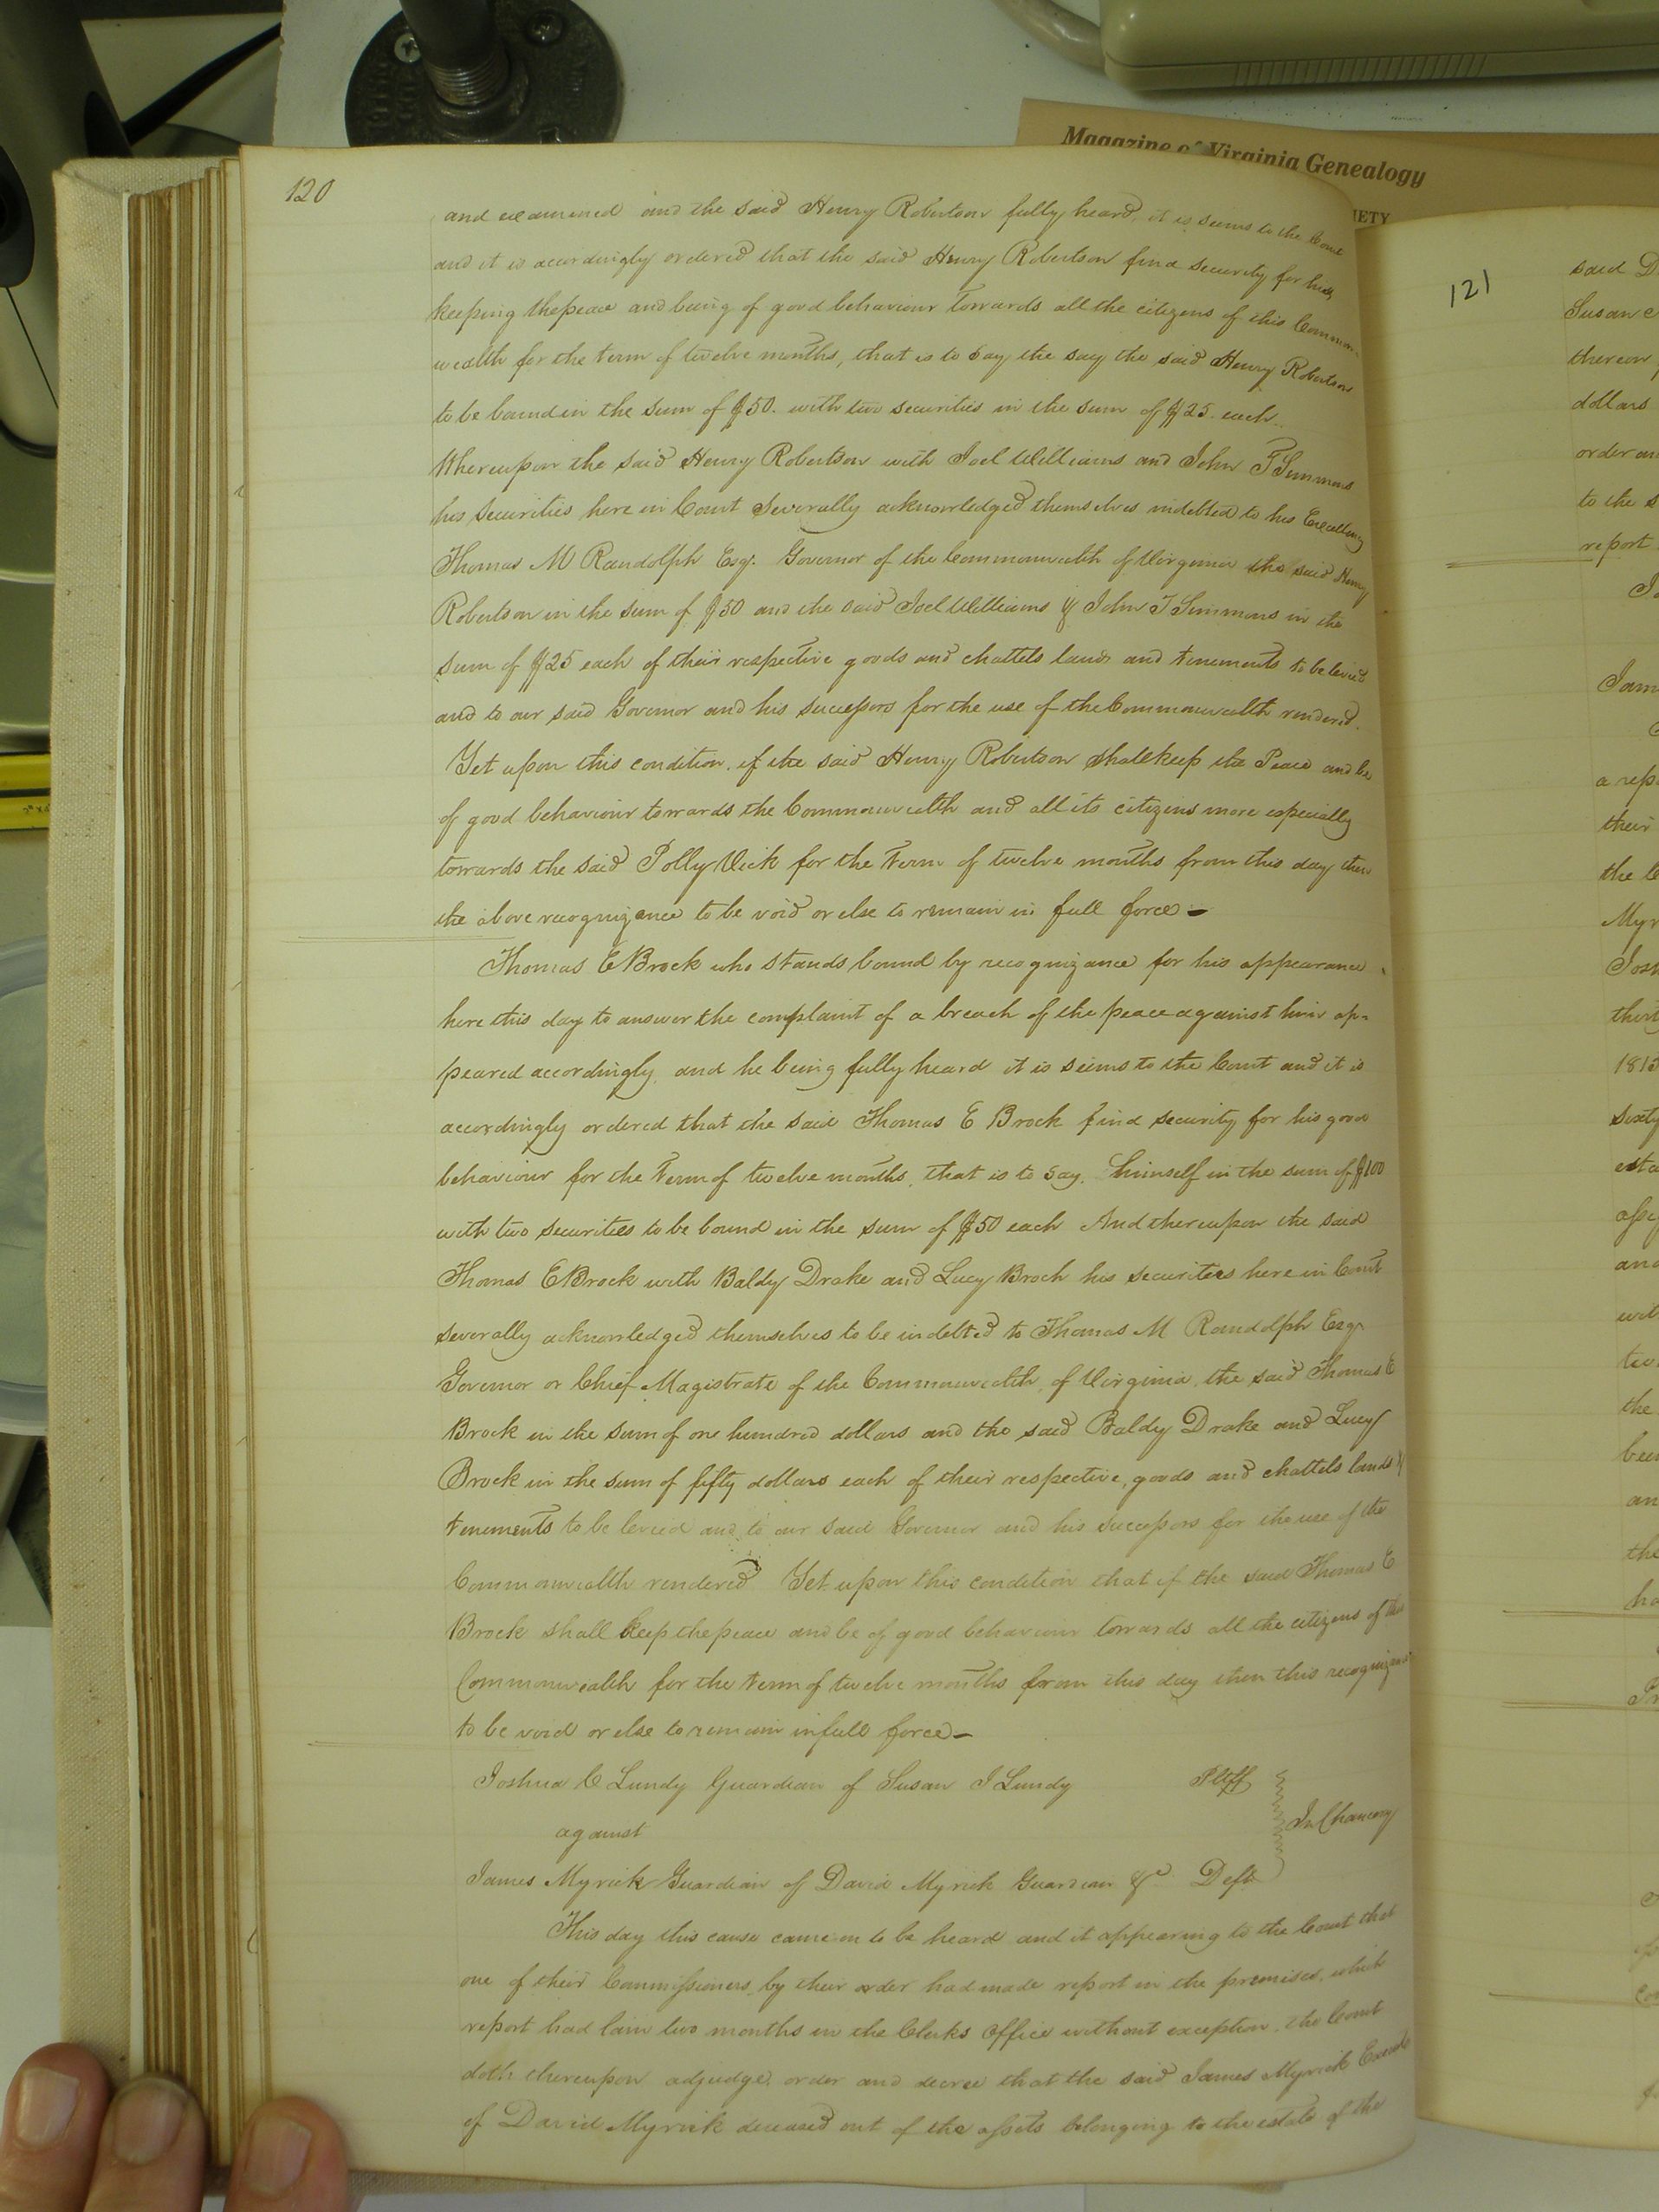 Magazine of Virginia Genealogy
IETY
120
and examined and the said Henry Robertson fully heard, it is seems to the Court
and it is accordingly ordered that the said Henry Robertson find security for his
keeping the peace and being of good behaviour towards all the citizens of this Common-
wealth for the term of twelve months, that is to say the say the said Henry Robertson
to be bound in the sum of $50. with two securities in the sum of $25. each.
Whereupon the said Henry Robertson with Joel Williams and John T Simmons
his securities here in Court severally acknowledged themselves indebted to his Excellency
Thomas M Randolph Esqr. Governor of the Commonwealth of Virginia the said Henry
Robertson in the sum of $50 and the said Joel Williams & John T Simmons in the
sum of $25 each of their respective goods and chattels lands and tenements to be levied
and to our said Governor and his successors for the use of the Commonwealth rendered.
Yet upon this condition, if the said Henry Robertson shall keep the Peace and be
of good behaviour towards the Commonwealth and all its citizens more especially
towards the said Polly Vick for the term of twelve months from this day then
the above recognizance to be void or else to remain in full force -
Thomas E Brock who stands bound by recognizance for his appearance
here this day to answer the complaint of a breach of the peace against him ap-
peared accordingly, and he being fully heard it is seems to the Court and it is
accordingly ordered that the said Thomas E Brock find security for his good
behaviour for the term of twelve months, that is to say, himself in the sum of $100
with two securities to be bound in the sum of $50 each And thereupon the said
Thomas E Brock with Baldy Drake and Lucy Broch his securites here in Court
severally acknowledged themselves to be indebted to Thomas M Randolph Esqr
Governor or Chief Magistrate of the Commonwealth, of Virginia, the said Thomas E
Brock in the sum of one hundred dollars and the said Baldy Drake and Lucy
Brock in the sum of fifty dollars each of their respective, goods and chattels lands &
tenements to be levied and to our said Governor and his successors for the use of the
Commonwealth rendered Yet upon this condition that if the said Thomas E
Brock shall keep the peace and be of good behaviour towards all the citizens of this
Commonwealth for the term of twelve months from this day then this recognizance
to be void or else to remain in full force -
Joshua C Lundy Guardian of Susan J Lundy Pltff
against In Chancery
James Myrick Guardian of David Myrick Guardian &c Deft
This day this cause came on to be heard and it appearing to the Court that
one of their Commissioners, by their order had made report in the premises, which
report had lain two months in the Clerks Office without exception, the Court
doth thereupon adjudge, order and decree that the said James Myrick
of David Myrick deceased out of the assets belonging to the estate of the
121
said D
Susan
thereon
dollars
order an
to the s
report
Jam
a rep
their
the C
Myr
Josh
thirty
181
sixty
esta
and
the
been
an
the
ha